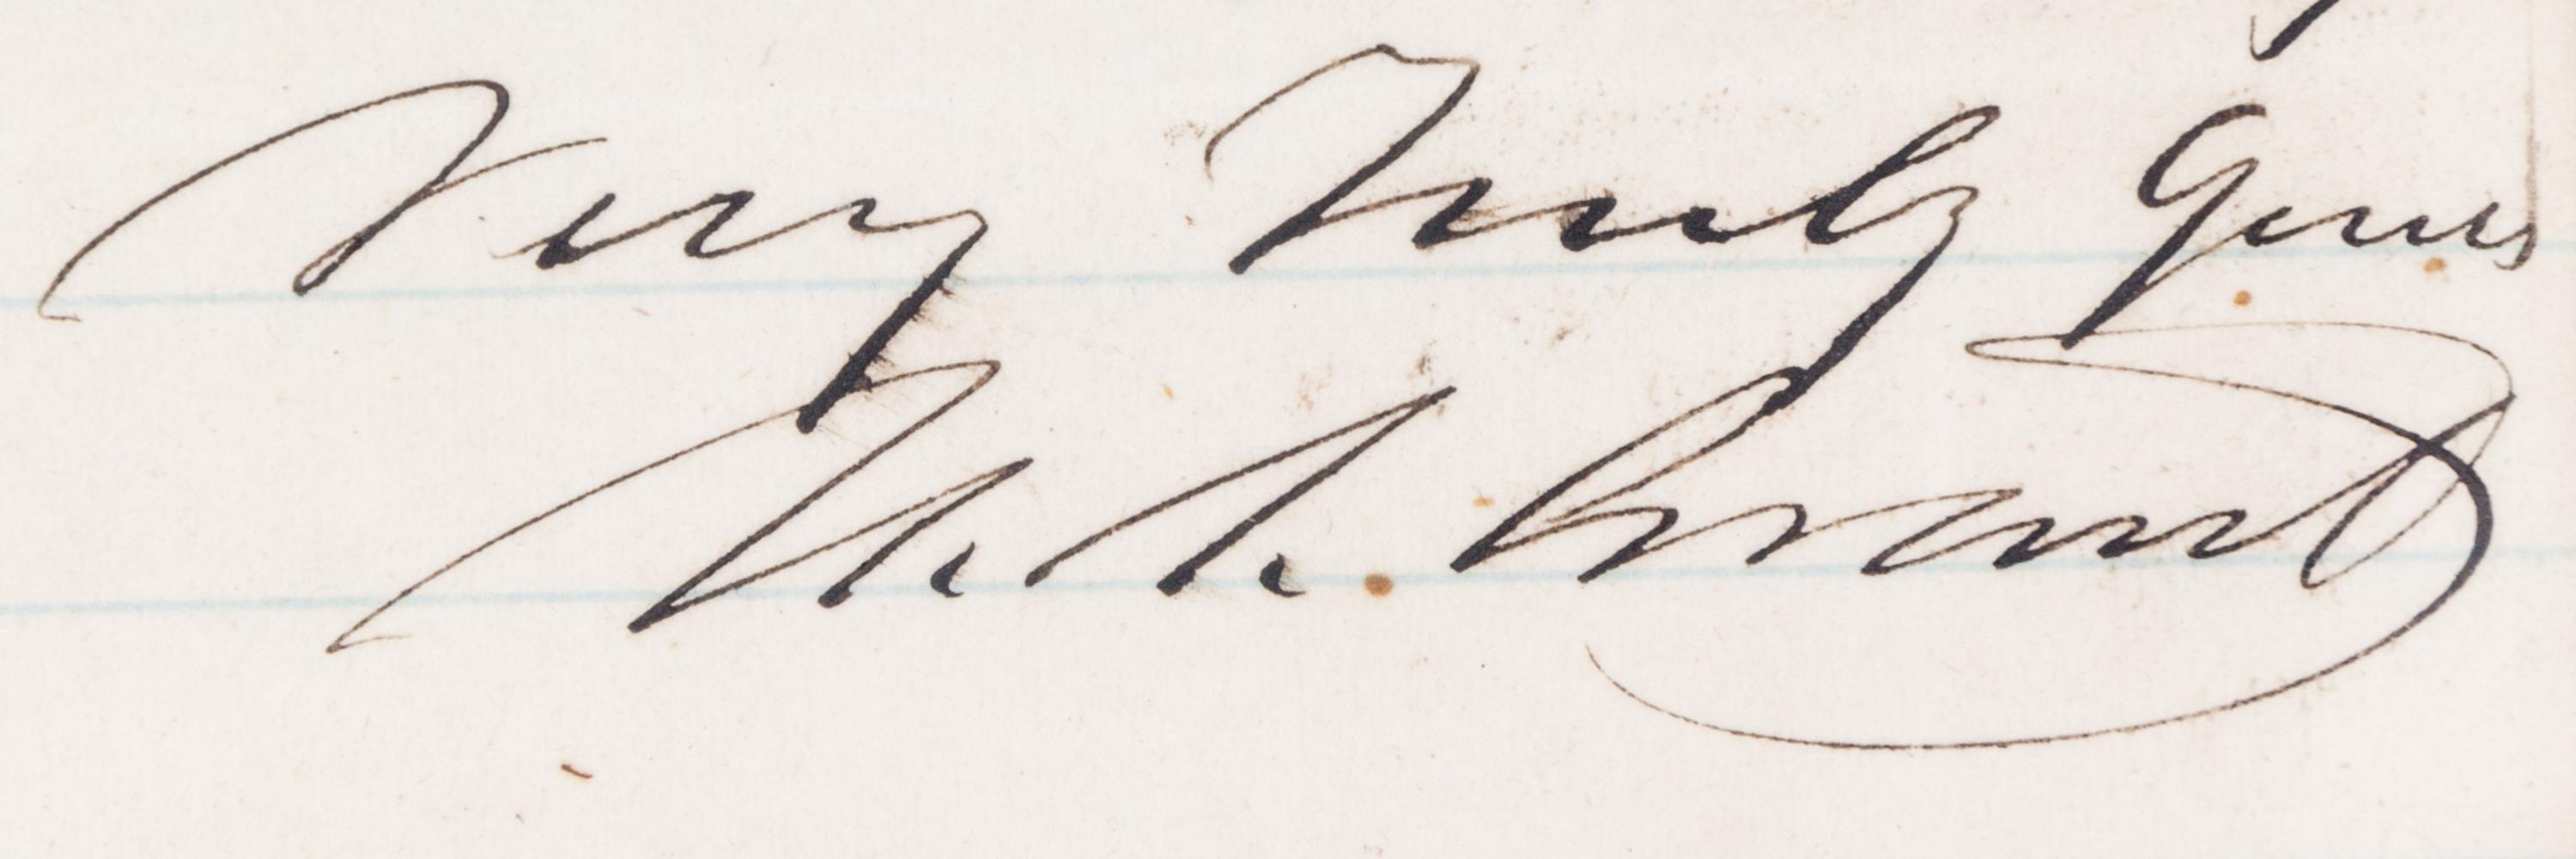 Very Truly Yours
Grant